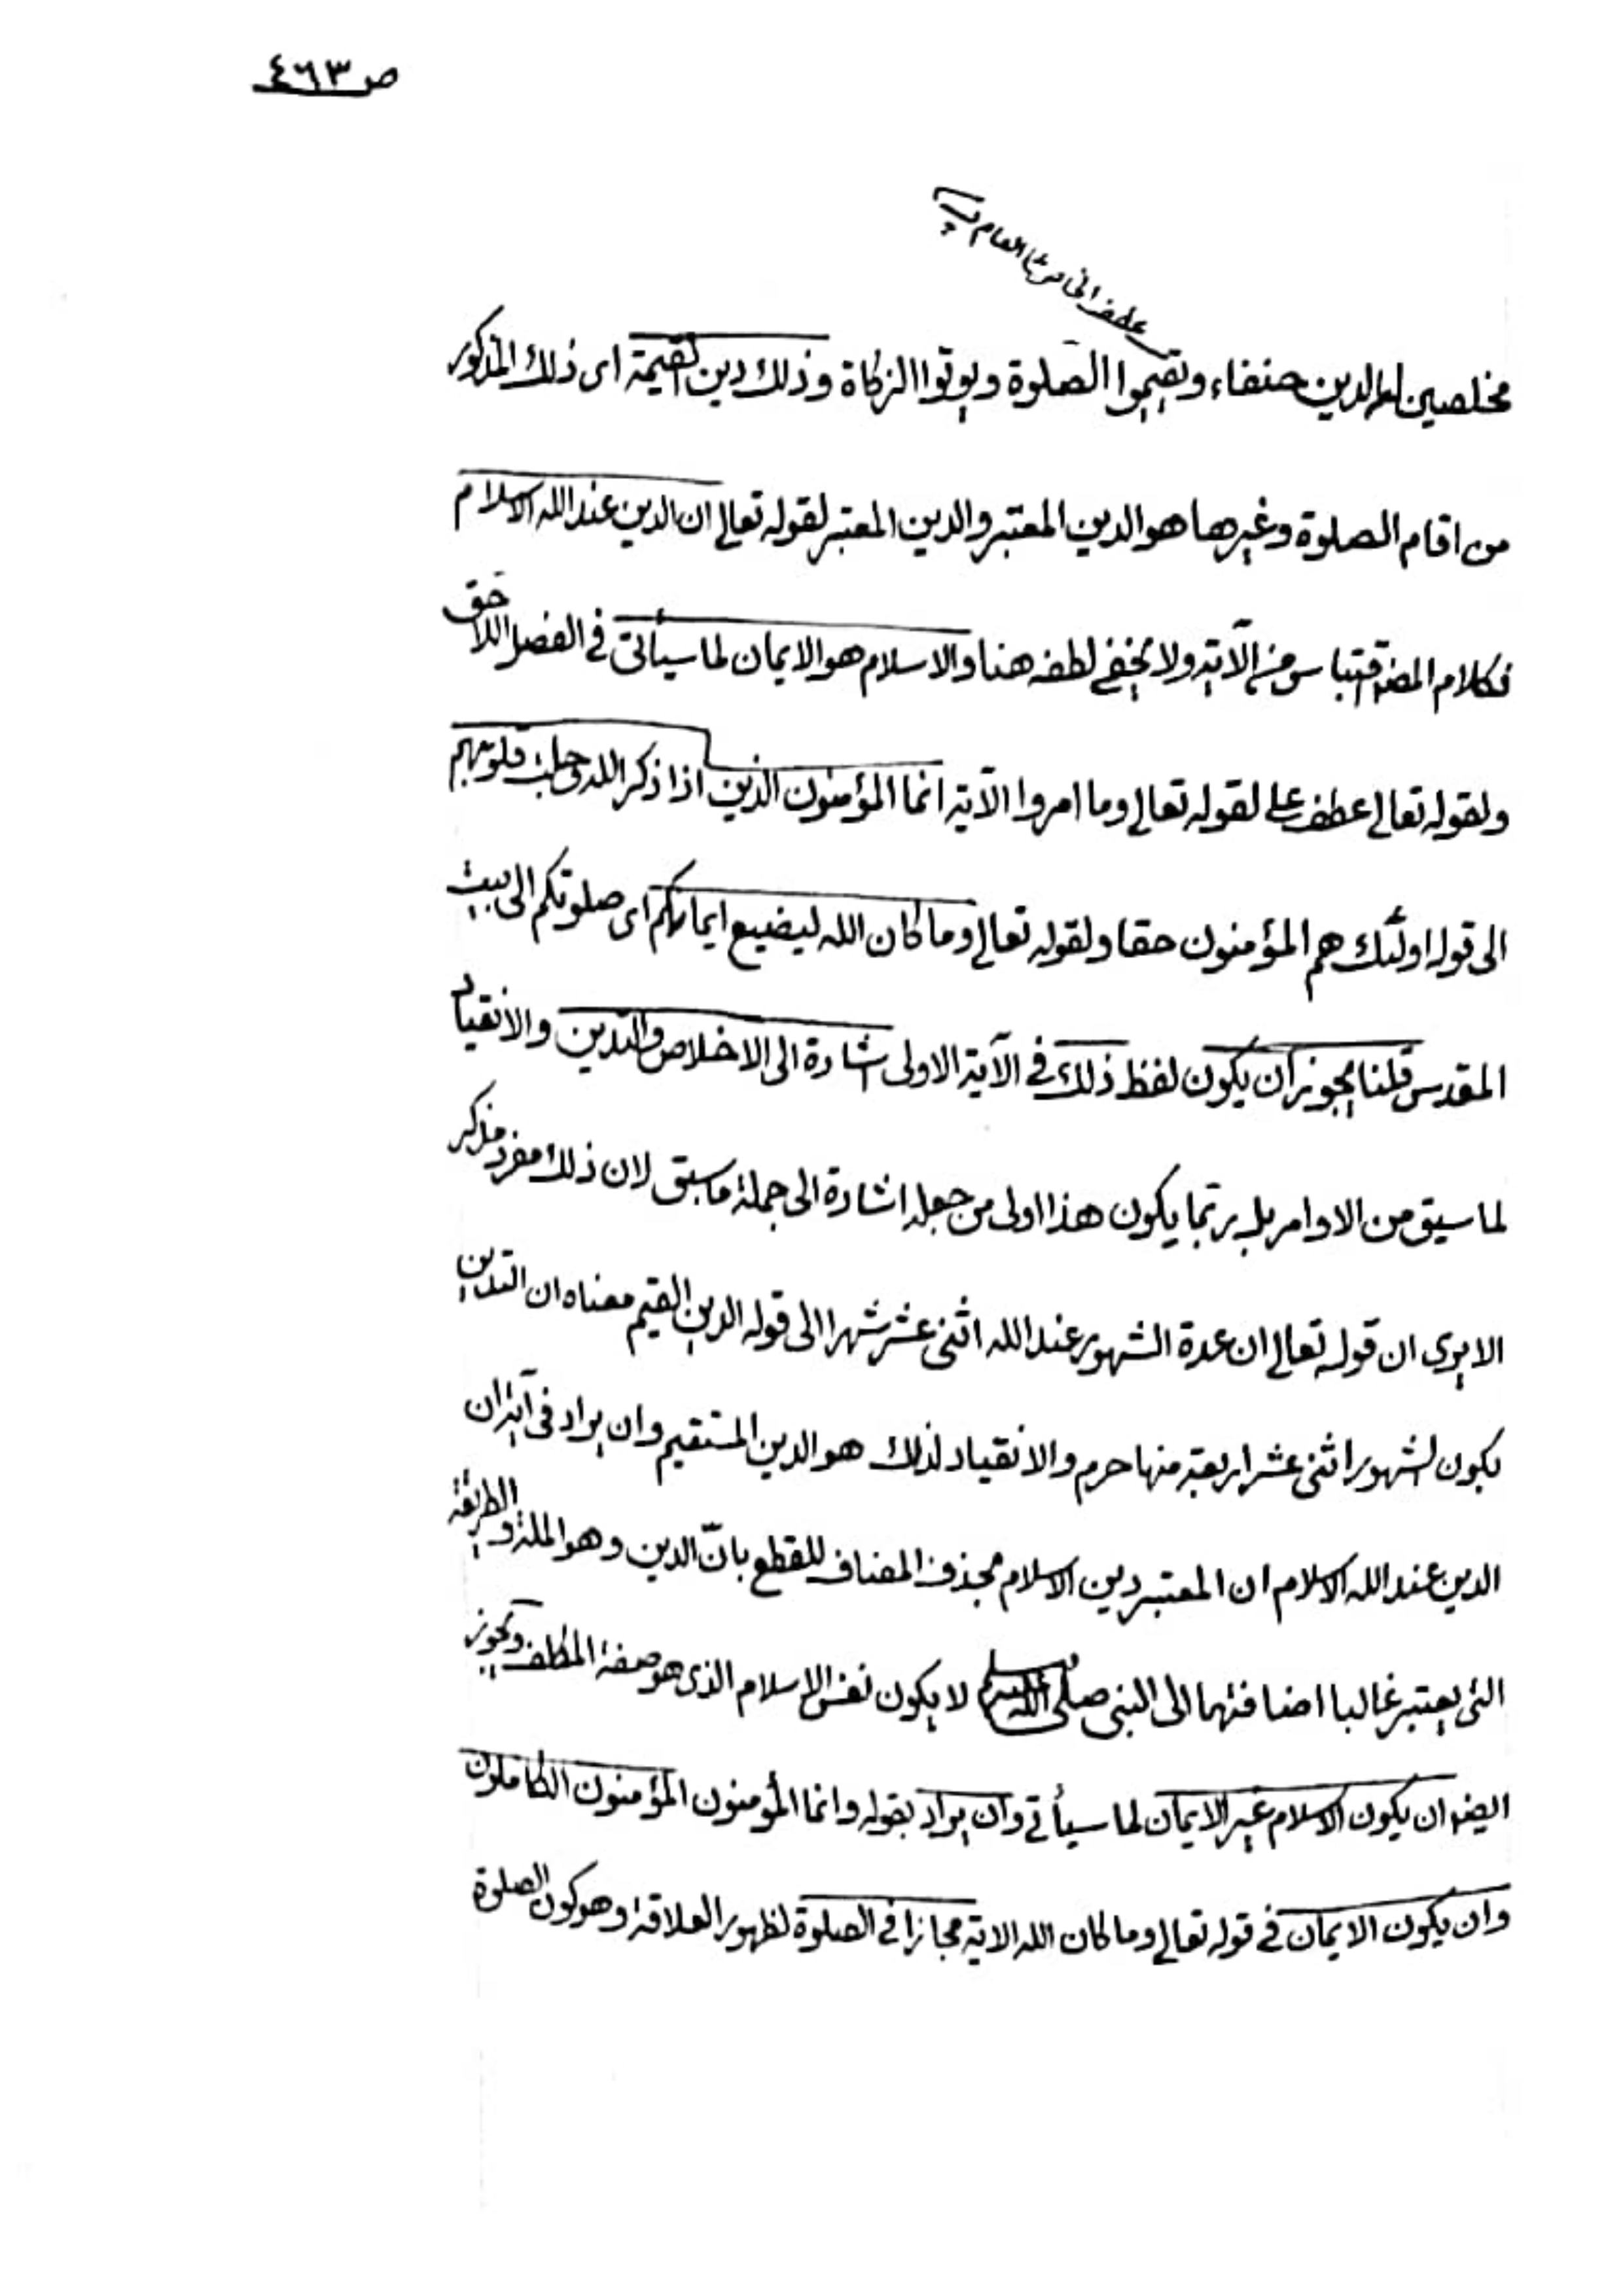 ص ٤٦٣
عطف الخاص على العام
مخلصين له الدين حنفاء ويقيموا الصلوة ويؤتوا الزكاة وذلك دين القيمة اى ذلك المذكور
من اقام الصلوة وغيرها هو الدين المعتبر والدين المعتبر لقوله تعالى ان الدين عند الله الاسلام
فكلام المصنف اقتباس من الآية ولا يخفى لطفه هنا والاسلام هو الايمان لما سيأتى فى الفصل اللاحق
ولقوله تعالى عطف على لقوله تعالى وما امروا الآية انما المؤمنون الذين اذا ذكر الله وجلت قلوبهم
الى قوله اولئك هم المؤمنون حقا ولقوله تعالى وما كان الله ليضيع ايمانكم اى صلوتكم الى بيت
المقدس قلنا يجوز أن يكون لفظ ذلك فى الآية الاولى اشارة الى الاخلاص والتدين والانقياد
لما سيق من الاوامر بل ربما يكون هذا اولى من جعله اشارة الى جملة ما سبق لان ذلك مفرد مذكر
الا يرى ان قوله تعالى ان عدة الشهور عند الله اثنى عشر شهرا الى قوله الدين القيم معناه ان التدين
بكون الشهور اثنى عشر اربعة منها حرم والانقياد لذلك هو الدين المستقيم وان يراد فى آية ان
الدين عند الله الاسلام ان المعتبر دين الاسلام بحذف المضاف للقطع بانّ الدين وهو الملة والطريقة
التى يعتبر غالبا اضافتهما الى النبى صلى الله عليه وسلم لا يكون نفس الاسلام الذى هو صفة المكلف ويجوز
ايضا ان يكون الاسلام غير الايمان لما سيأتى وان يراد بقوله وانما المؤمنون المؤمنون الكاملون
وان يكون الايمان فى قوله تعالى وما كان الله الاية مجازا فى الصلوة لظهور العلاقة وهو كون الصلوة